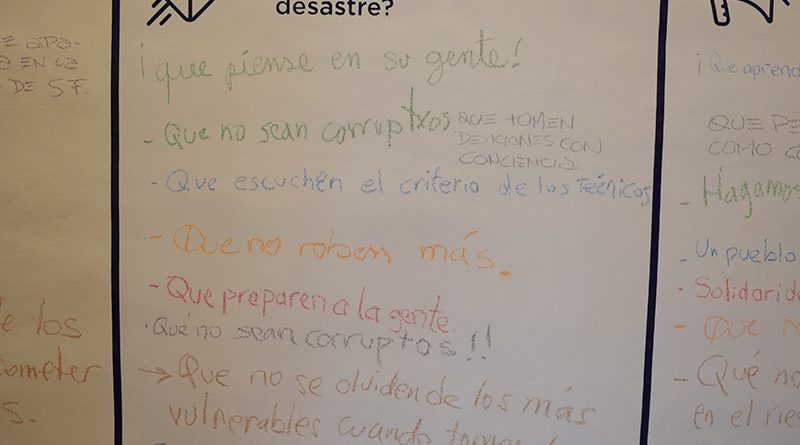 desastre?
¡que piense en su gente!
- Que no sean corruptxos
QUE TOMEN
DESICIONES CON
CONCIENCIA
- Que escuchen el criterio de los técnicos
- Que no roben más.
- Que preparen a la gente.
· Que no sean corruptos!!
→ Que no se olviden de los más
vulnerables cuando
EN LA
DE S.F.
de los
cometer
s.
¡Que aprend
QUE PE
COMO C
- Hagamos
- Un pueblo
- Solidarida
- QUE N
- Qué no
en el ries